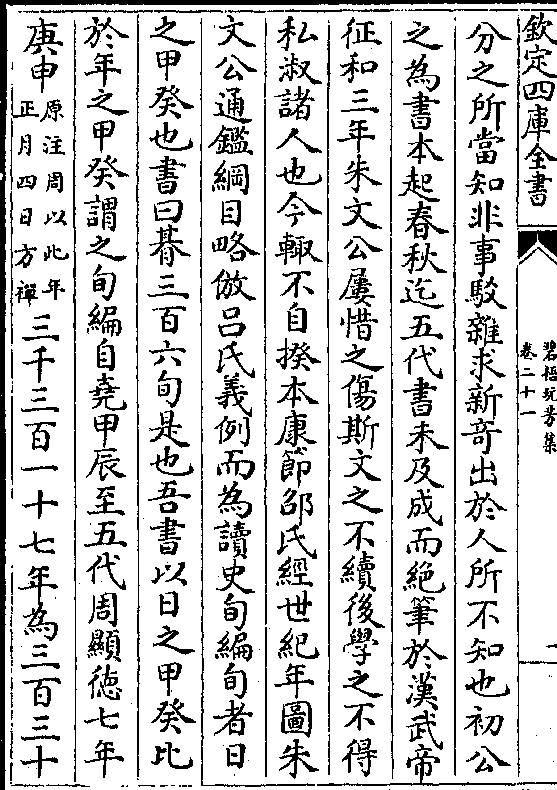 欽定四庫全書
碧梧玩芳集
卷二十一
一
分之所當知非事駁雜求新奇出於人所不知也初公
之為書本起春秋迄五代書未及成而絶筆於漢武帝
征和三年朱文公屢惜之傷斯文之不續後學之不得
私淑諸人也今輙不自揆本康節邵氏經世紀年圖朱
文公通鑑綱目略倣吕氏義例而為讀史旬編旬者日
之甲癸也書曰朞三百六旬是也吾書以日之甲癸比
於年之甲癸謂之旬編自堯甲辰至五代周顯徳七年
庚申原注周以此年正月四日方禪三千三百一十七年為三百三十